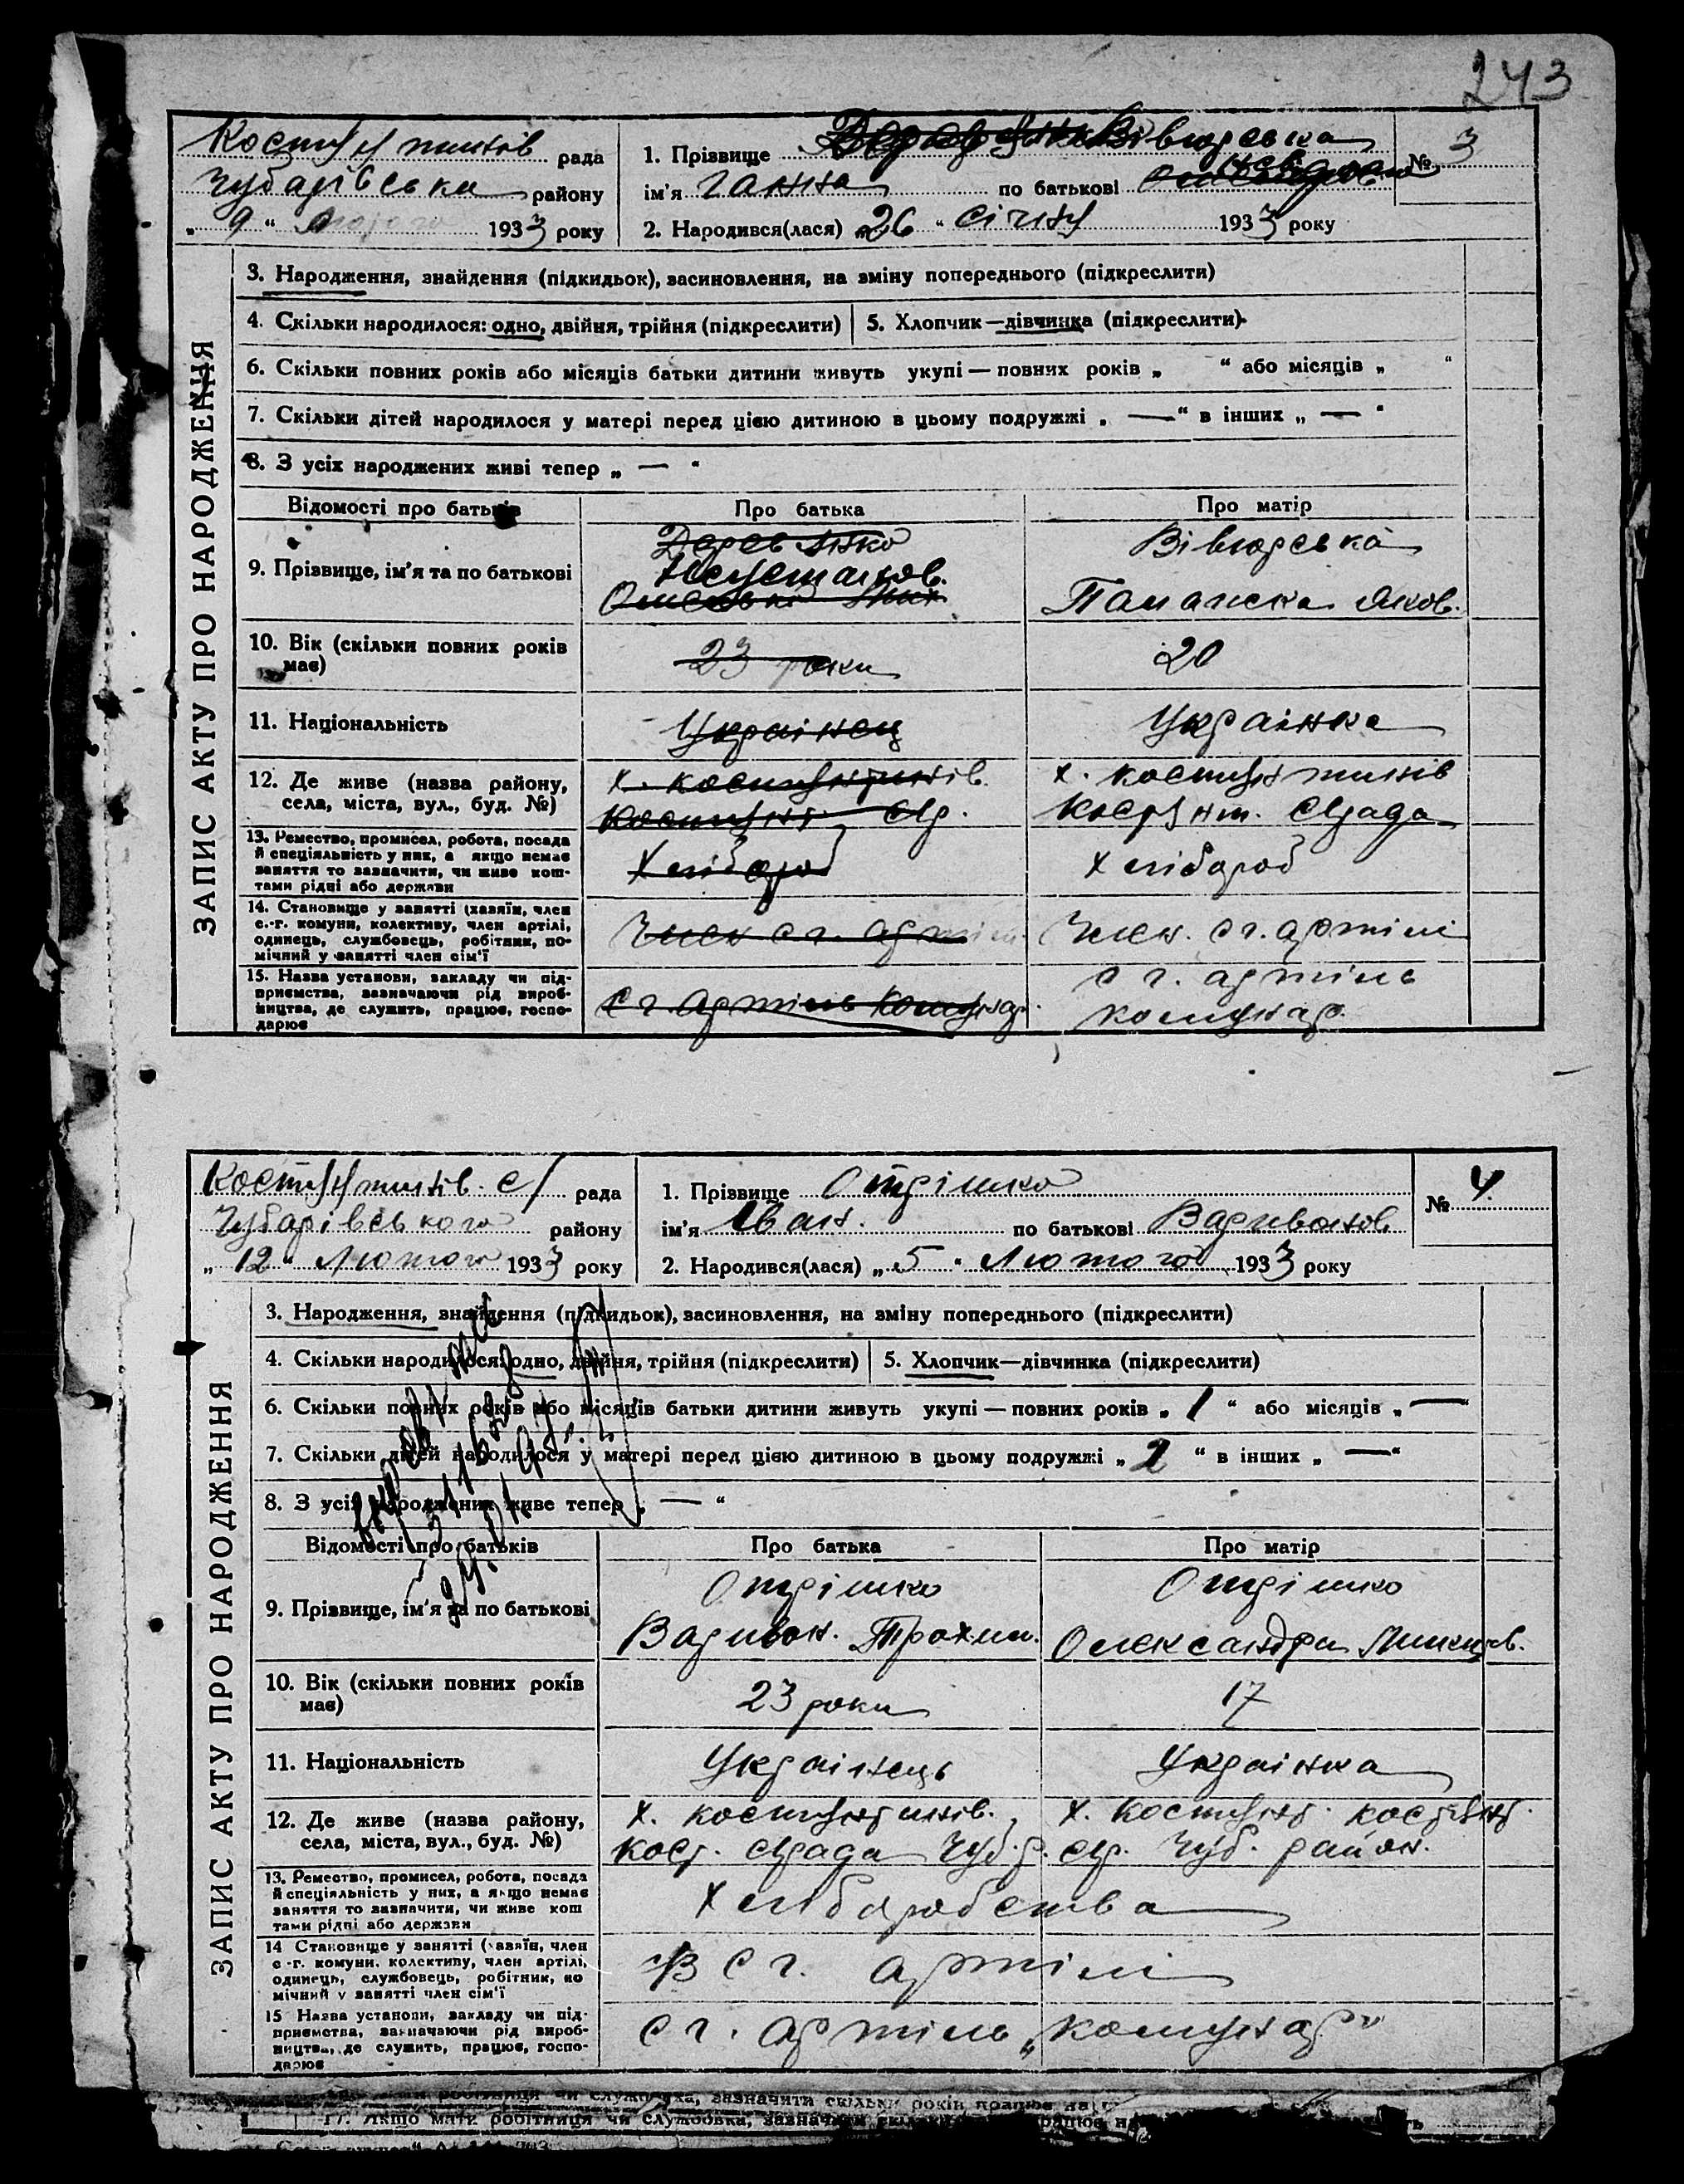 243
Костянтинів рада
Чубарівська району
„ 9 “ Лютого 1933 року
1. Прізвище Вівюрська
ім'я Ганна по батькові
№ 3
2. Народився(лася) „ 26 “ Січня 1933 року
ЗАПИС АКТУ ПРО НАРОДЖЕННЯ
3. Народження, знайдення (підкидьок), засиновлення, на зміну попереднього (підкреслити)
4. Скільки народилося: одно, двійня, трійня (підкреслити) 5. Хлопчик—дівчинка (підкреслити)
6. Скільки повних років або місяців батьки дитини живуть укупі — повних років „ “ або місяців „ “
7. Скільки дітей народилося у матері перед цією дитиною в цьому подружжі „ — “ в інших „ — “
8. З усіх народжених живі тепер „ — “
Відомості про батьків Про батька Про матір
9. Прізвище, ім'я та по батькові
Вівюрська
Яков.
10. Вік (скільки повних років має) 23 роки 20
11. Національність Українец Українка
12. Де живе (назва району, села, міста, вул., буд. №)
х. костянтинів. х. костянтинів
костянт. с/р. Костянт. с/рада
13. Ремество, промисел, робота, посада й спеціяльність у них, а якщо немає заняття то зазначити, чи живе коштами рідні або держави
Хлібороб Хлібороб
14. Становище у занятті (хазяїн, член с.-г. комуни, колективу, член артілі, одинець, службовець, робітник, помічний у занятті член сім'ї
Член с г. артіл. Член. с г. артілі
15. Назва установи, закладу чи підприємства, зазначаючи рід виробництва, де служить, працює, господарює
с г. артіль Комунар. с г. артіль
комунар.
Костянтинів. с/ рада
Чубарівського району
„ 12 “ Лютого 1933 року
1. Прізвище Отрішко
ім'я Іван. по батькові Варивонов
№ 4
2. Народився(лася) „ 5 “ Лютого 1933 року
ЗАПИС АКТУ ПРО НАРОДЖЕННЯ
3. Народження, знайдення (підкидьок), засиновлення, на зміну попереднього (підкреслити)
4. Скільки народилося: одно, двійня, трійня (підкреслити) 5. Хлопчик—дівчинка (підкреслити)
6. Скільки повних років або місяців батьки дитини живуть укупі — повних років „ 1 “ або місяців „ — “
7. Скільки дітей народилося у матері перед цією дитиною в цьому подружжі „ “ в інших „ — “
8. З усіх народжених живе тепер „ — “
Відомості про батьків Про батька Про матір
9. Прізвище, ім'я та по батькові
Отрішко Отрішко
Варивон. Трохим. Олександра Микит.
10. Вік (скільки повних років має) 23 роки 17
11. Національність Українець Українка
12. Де живе (назва району, села, міста, вул., буд. №)
х. костянтинів. х. Костянт. костянт.
кост. с/рада Чуб. р. с/р. Чуб. район.
13. Ремество, промисел, робота, посада й спеціяльність у них, а якщо немає заняття то зазначити, чи живе коштами рідні або держави
Хліборобства
14 Становище у занятті (хазяїн, член с.-г. комуни, колективу, член артілі, одинець, службовець, робітник, помічний у занятті член сім'ї
В с г. артілі
15 Назва установи, закладу чи підприємства, зазначаючи рід виробництва, де служить, працює, господарює
с г. артіль „комунар“
17. Якщо мати робітниця чи службовка, зазначити скільки